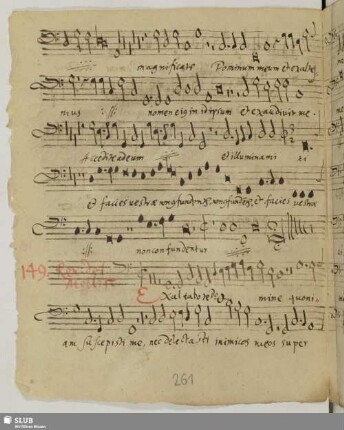 magnificate Dominum meum et exalte
mus :||: nomen eius in idipsum et exaudivit me.
Accedite ad eum et illuminami ni
et facies vestræ non confundentur, et facies vestræ
:||: non confundentur
149.
Exaltabo te Do mine quoni-
am suscepisti me, nec delectasti inimicos meos super
261
SLUB
Wir führen Wissen.